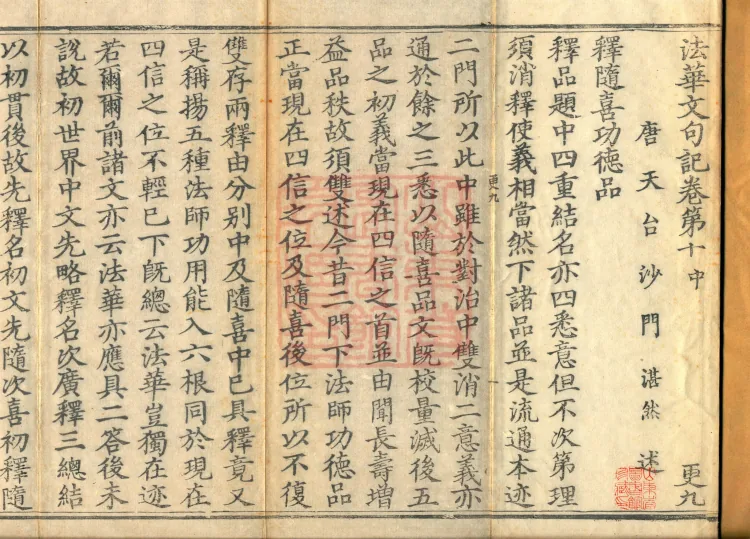 法華文句記卷第十中 更九
唐天台沙門湛然述
釋隨喜功德品
釋品題中四重結名亦四悉意但不次第理
須消釋使義相當然下諸品並是流通本迹
更九
二門所以此中雖於對治中雙消二意義亦
通於餘之三悉以隨喜品文旣校量滅後五
品之初義當現在四信之首並由聞長壽增
益品秩故須雙述今昔二門下法師功德品
正當現在四信之位及隨喜後位所以不復
雙存兩釋由分別中及隨喜中已具釋竟又
是稱揚五種法師功用能入六根同於現在
四信之位不輕已下旣總云法華豈獨在迹
若爾爾前諸文亦云法華亦應具二答後未
說故初世界中文先略釋名次廣釋三總結
以初貫後故先釋名初文先隨次喜初釋隨